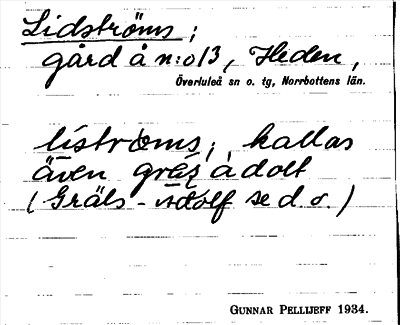 Lidströms;
gård å n:o 13, Heden,
Överluleå sn o. tg, Norrbottens län.
lìströms; kallas
även gräs ådolf
(Gräls-Adolf se d. o.)
GUNNAR PELLIJEFF 1934.